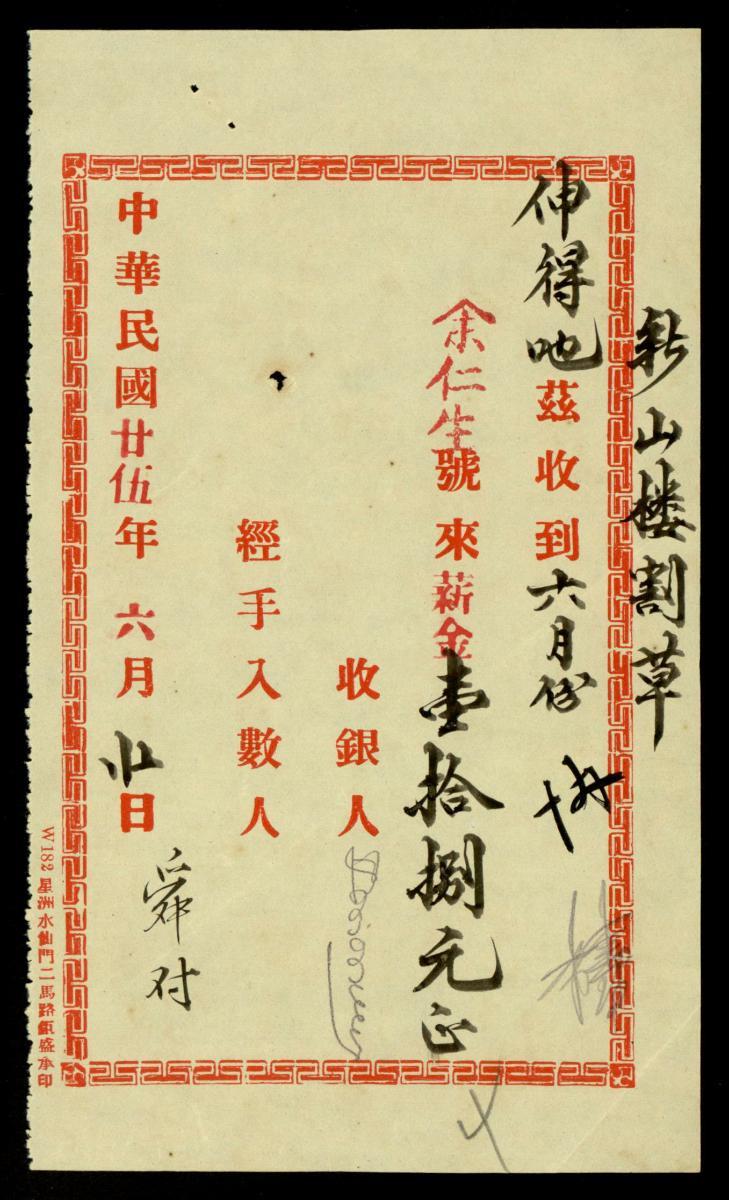 新山楼割草
伸得吔茲收到六月份
余仁生號來薪金壹拾捌元正
收銀人
經手入數人
舜对
中華民國廿伍年六月廿日
W182星洲水仙門二馬路瓊盛承印